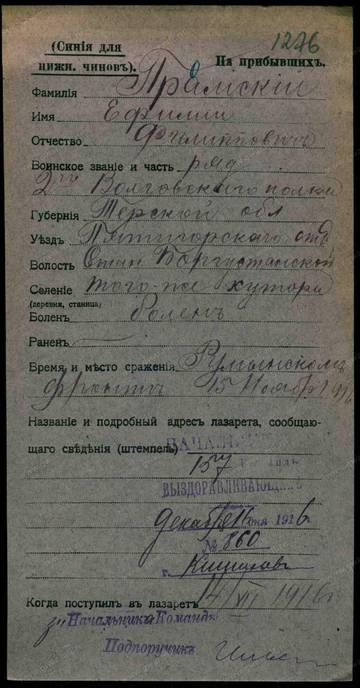 1276
(Синія для нижн. чиновъ).
На прибывшихъ.
Фамилія Прамскій
Имя Ефимий
Отчество Филипповичъ
Воинское званіе и часть ряд
2го Волговскаго полка
Губернія Терской обл
Уѣздъ Пятигорскаго отд
Волость Стан Боргустанской
Селеніе того-же хутора
(деревня, станица)
Боленъ Боленъ
Раненъ
Время и мѣсто сраженія Румынскомъ
фронтѣ 15 Ноября 1916
Названіе и подробный адресъ лазарета, сообщаю-
щаго свѣдѣнія (штемпель)
157
ВЫЗДОРАВЛИВАЮЩИХЪ
Декабря 16 дня 1916
№ 860
г. Кишиневъ
Когда поступилъ въ лазаретъ 14/XII 1916
Начальникъ Команды
Подпоручикъ